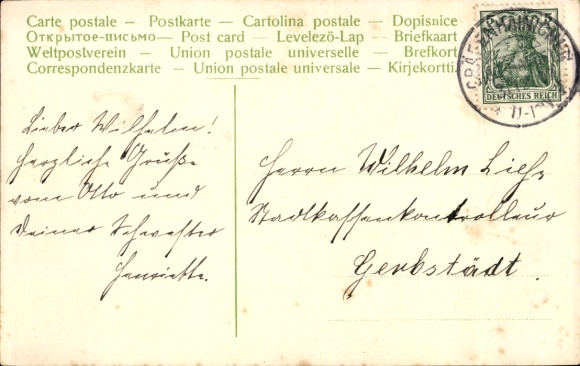 Carte postale — Postkarte — Cartolina postale — Dopisnice
Открытое-письмо — Post card — Levelezö-Lap — Briefkaart
Weltpostverein — Union postale universelle — Brefkort
Correspondenzkarte — Union postale universale — Kirjekortti
5 5
DEUTSCHES REICH
GRÄFENHAINICHEN
Lieber Wilhelm!
Herzliche Grüße
vom Otto und
Deiner Schwester
Henriette.
Herrn Wilhelm
Stadtkassenkontrolleur
Gerbstädt.